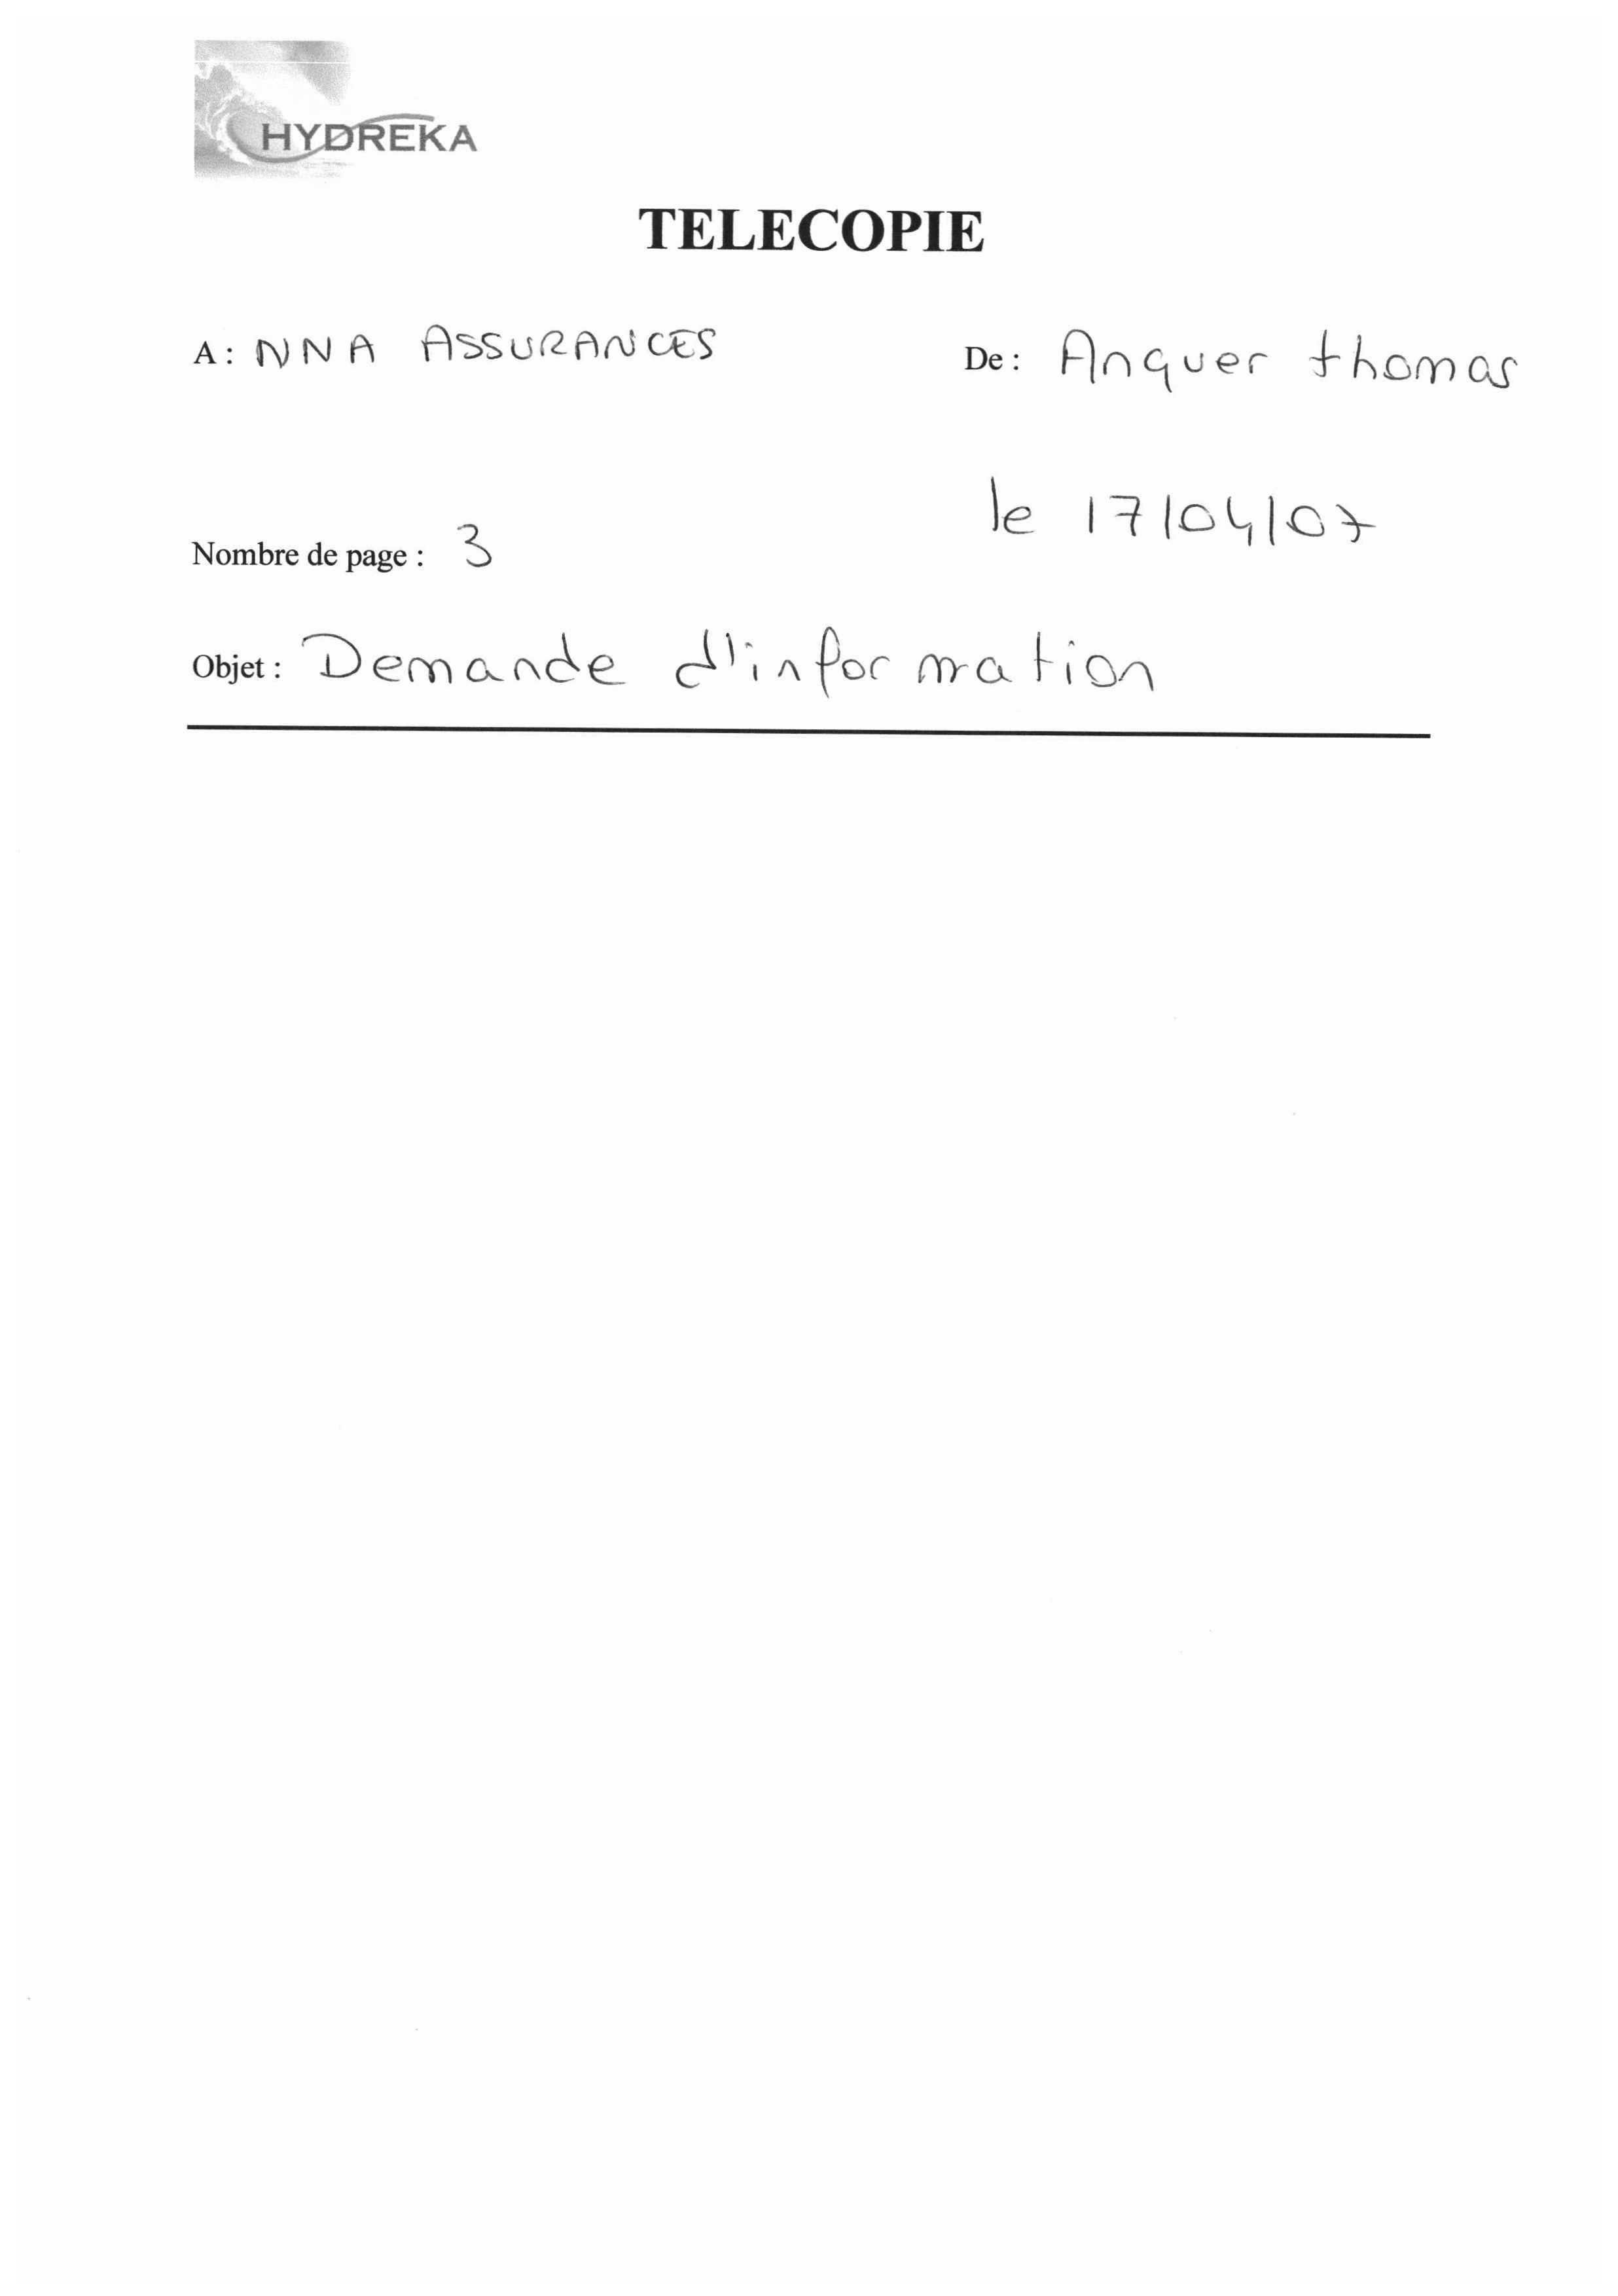 HYDREKA
TELECOPIE
A : NNA ASSURANCES
De : Anquer thomas
le 17/04/07
Nombre de page : 3
Objet : Demande d'information